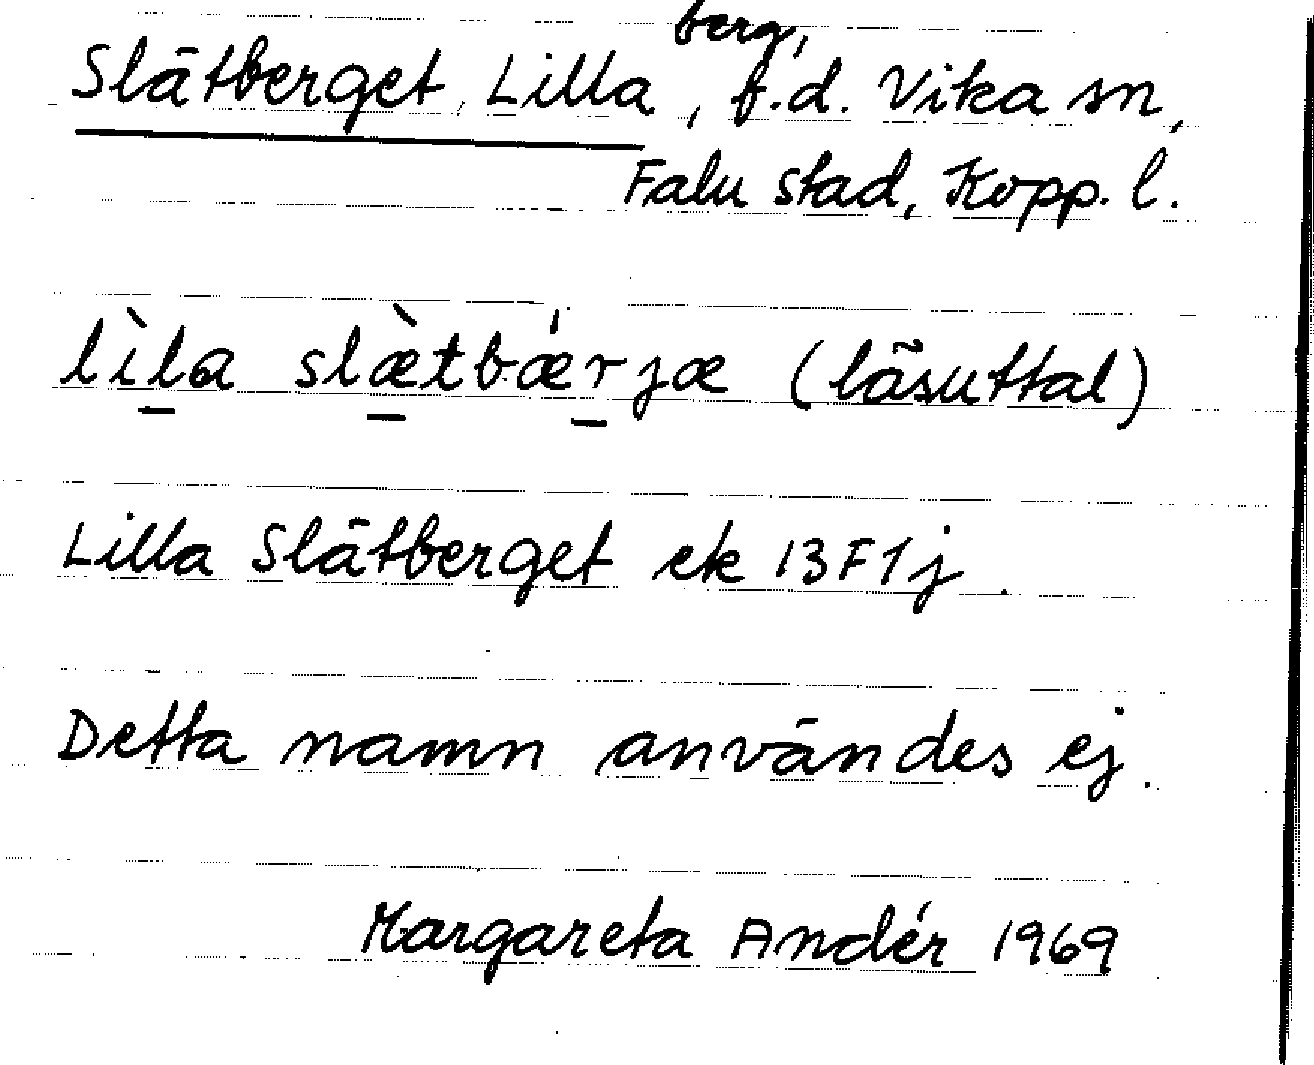 berg,
Slätberget, Lilla, f.d. Vika sn,
Falu stad, Kopp. l.
lìla slæ̀tbǽrjæ (läsuttal)
Lilla Slätberget ek 13F1j.
Detta namn användes ej.
Margareta Andér 1969